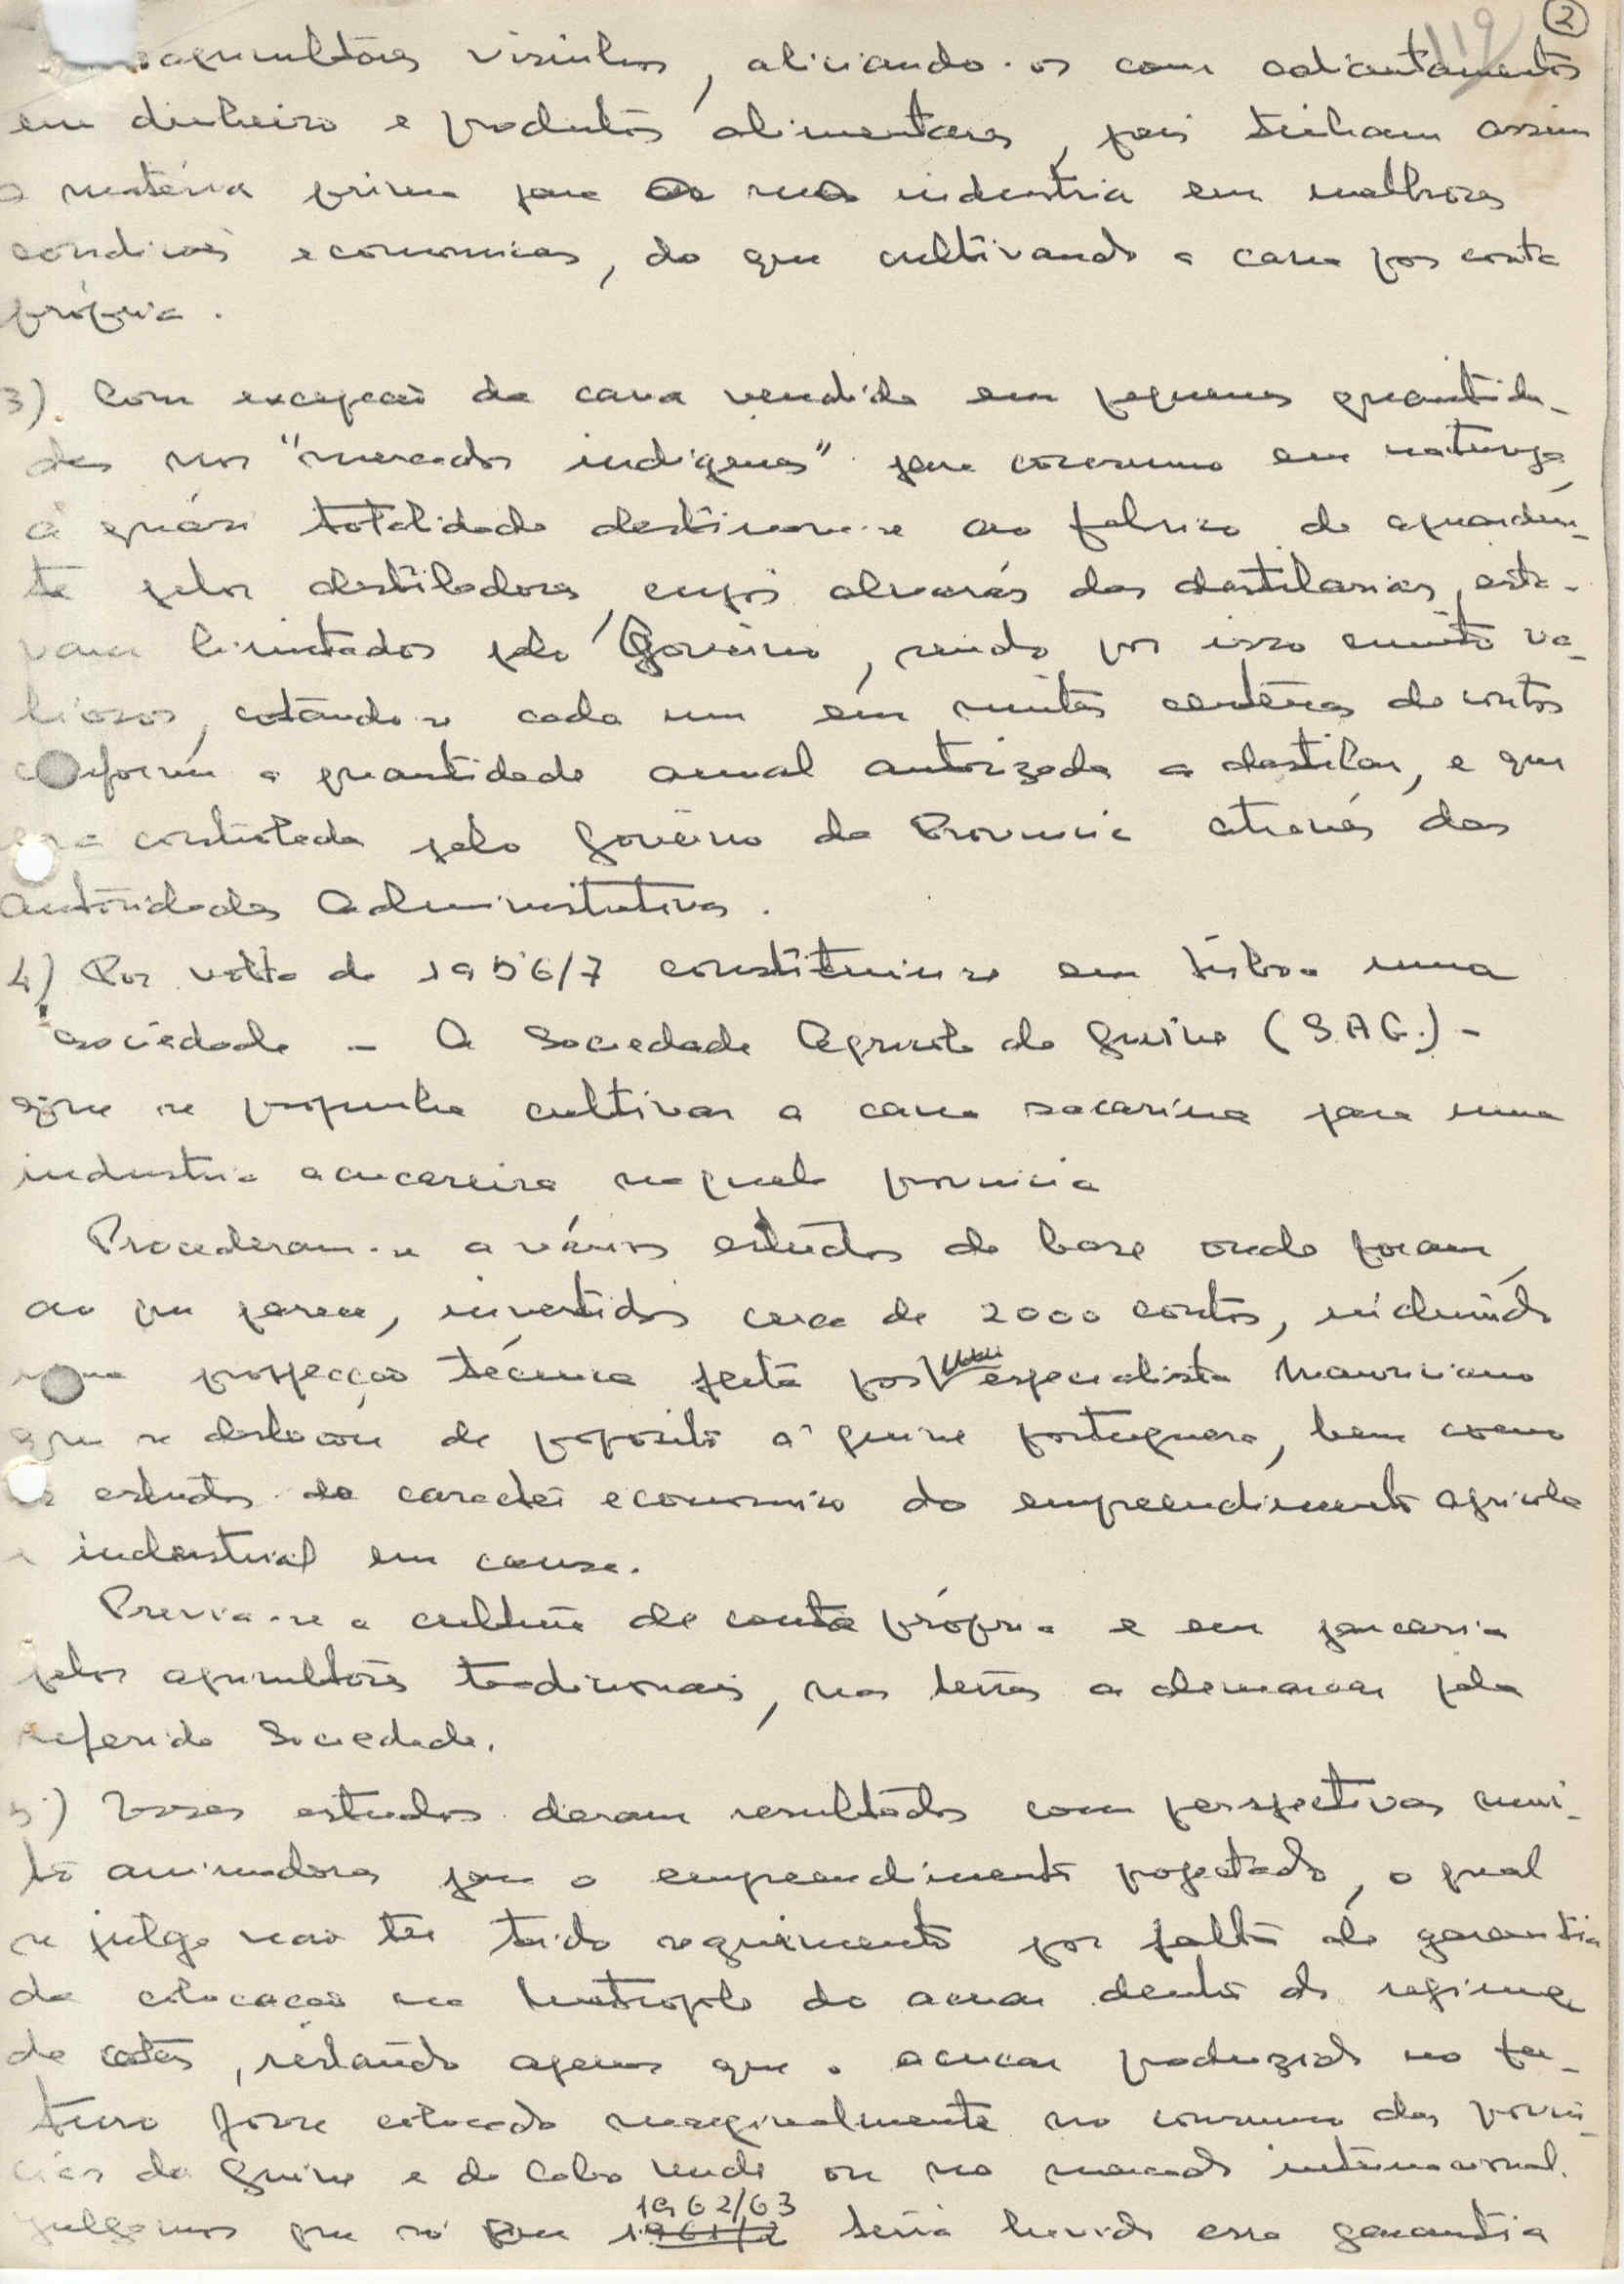 119 2
agricultores visinhos, aliciando-os com adiantamentos
em dinheiro e produtos alimentares, pois tinham assim
a matéria prima para a sua indústria em melhores
condições economicas, do que cultivando a cana por conta
própria.
3) Com excepção da cana vendida em pequenas quantida-
des nos "mercados indigenas" para consumo em natureza,
a quási totalidade destinava-se ao fabrico de aguarden-
te pelos destiladores, cujos alvarás das destilarias esta-
vam limitados pelo Govêrno, sendo por isso muito va-
liosos, cotando-se cada um em muitas centenas de contos
conforme a quantidade anual autorizada a destilar, e que
era controlada pelo Govêrno da Provincia através das
autoridades Administrativas.
4) Por volta de 1956/7 constituiu-se em Lisboa uma
sociedade - A Sociedade Agricola da Guiné (S.A.G.) -
que se propunha cultivar a cana sacarina para uma
industria açucareira naquela provincia
Procederam-se a vários estudos de base onde foram,
ao que parece, investidos cerca de 2000 contos, incluindo
uma prospecção técnica feita por especialista Mauriciano
que se deslocou de proposito à Guiné portuguesa, bem como
os estudos de caracter economico do empreendimento agricola
e industrial em causa.
Previa-se a cultura de conta própria e em parceria
pelos agricultores tradicionais, nas terras a demarcar pela
referida Sociedade.
5) Esses estudos deram resultados com perspectivas mui-
to animadoras para o empreendimento projectado, o qual
se julga não ter tido seguimento por falta de garantia
de colocação na Metropole do açucar dentro do regime
de cotas, restando apenas que o açucar produzido no fu-
turo fosse colocado marginalmente no consumo das provin-
cias da Guiné e de Cabo Verde ou no mercado internacional.
1962/63
Julgamos que só em 1961/2 teria havido essa garantia